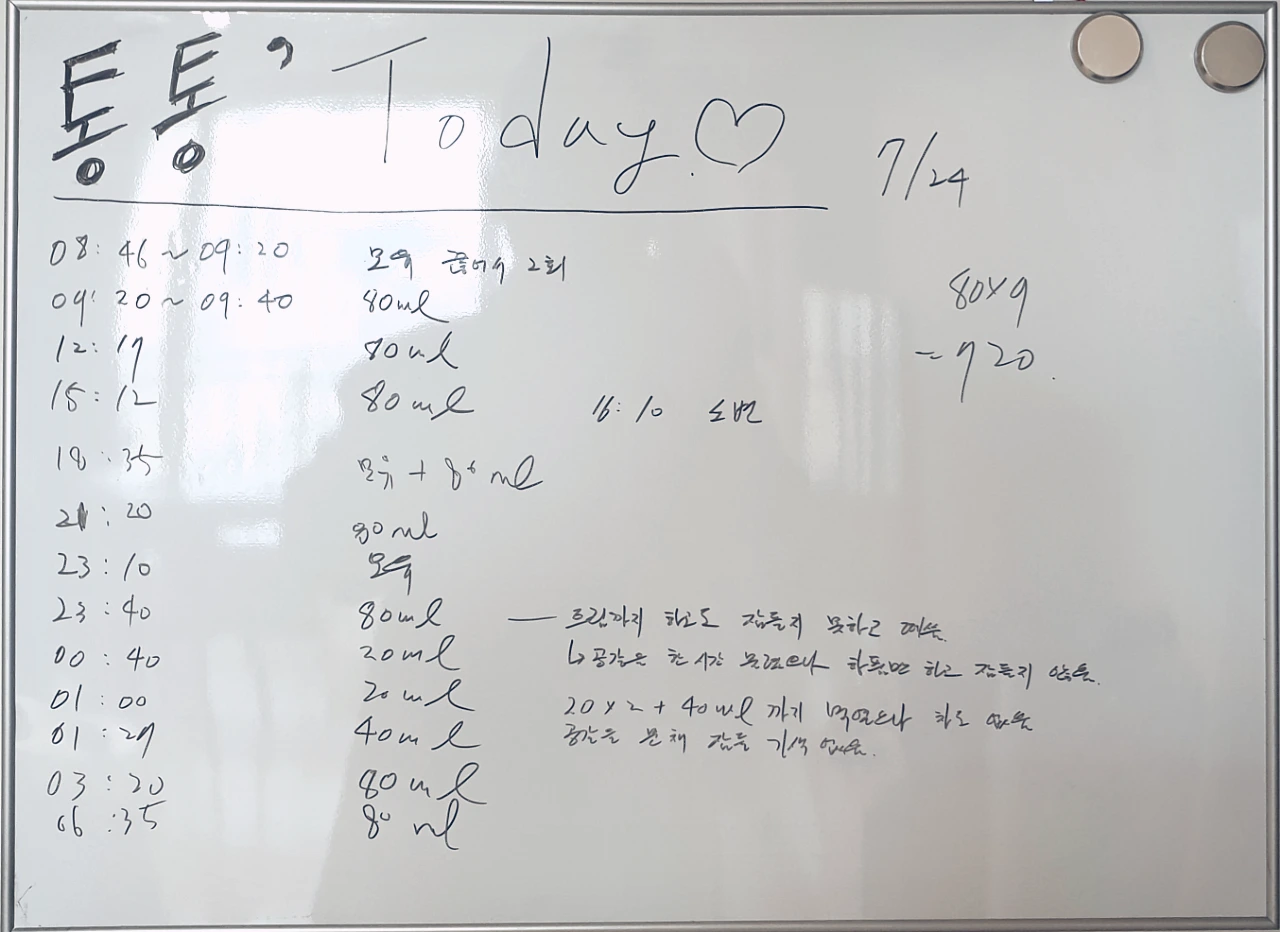 통통' Today. ♡
7/24
08:46 ~ 09:20 모유 끊어서 2회
09:20 ~ 09:40 80ml
80×9
= 720.
12:17 80ml
15:12 80ml 16:10 소변
18:35 모유 + 80ml
21:20 80ml
23:10 모유
23:40 80ml — 트림까지 하고도 잠들지 못하고
00:40 20ml ↳ 공갈은 한시간 물렸으나 하품만 하고 잠들지 않음.
01:00 20ml 20×2+40ml 까지 먹였으나 차도 없음
01:27 40ml 공갈을 문채 잠들 기색 없음.
03:20 80ml
06:35 80ml